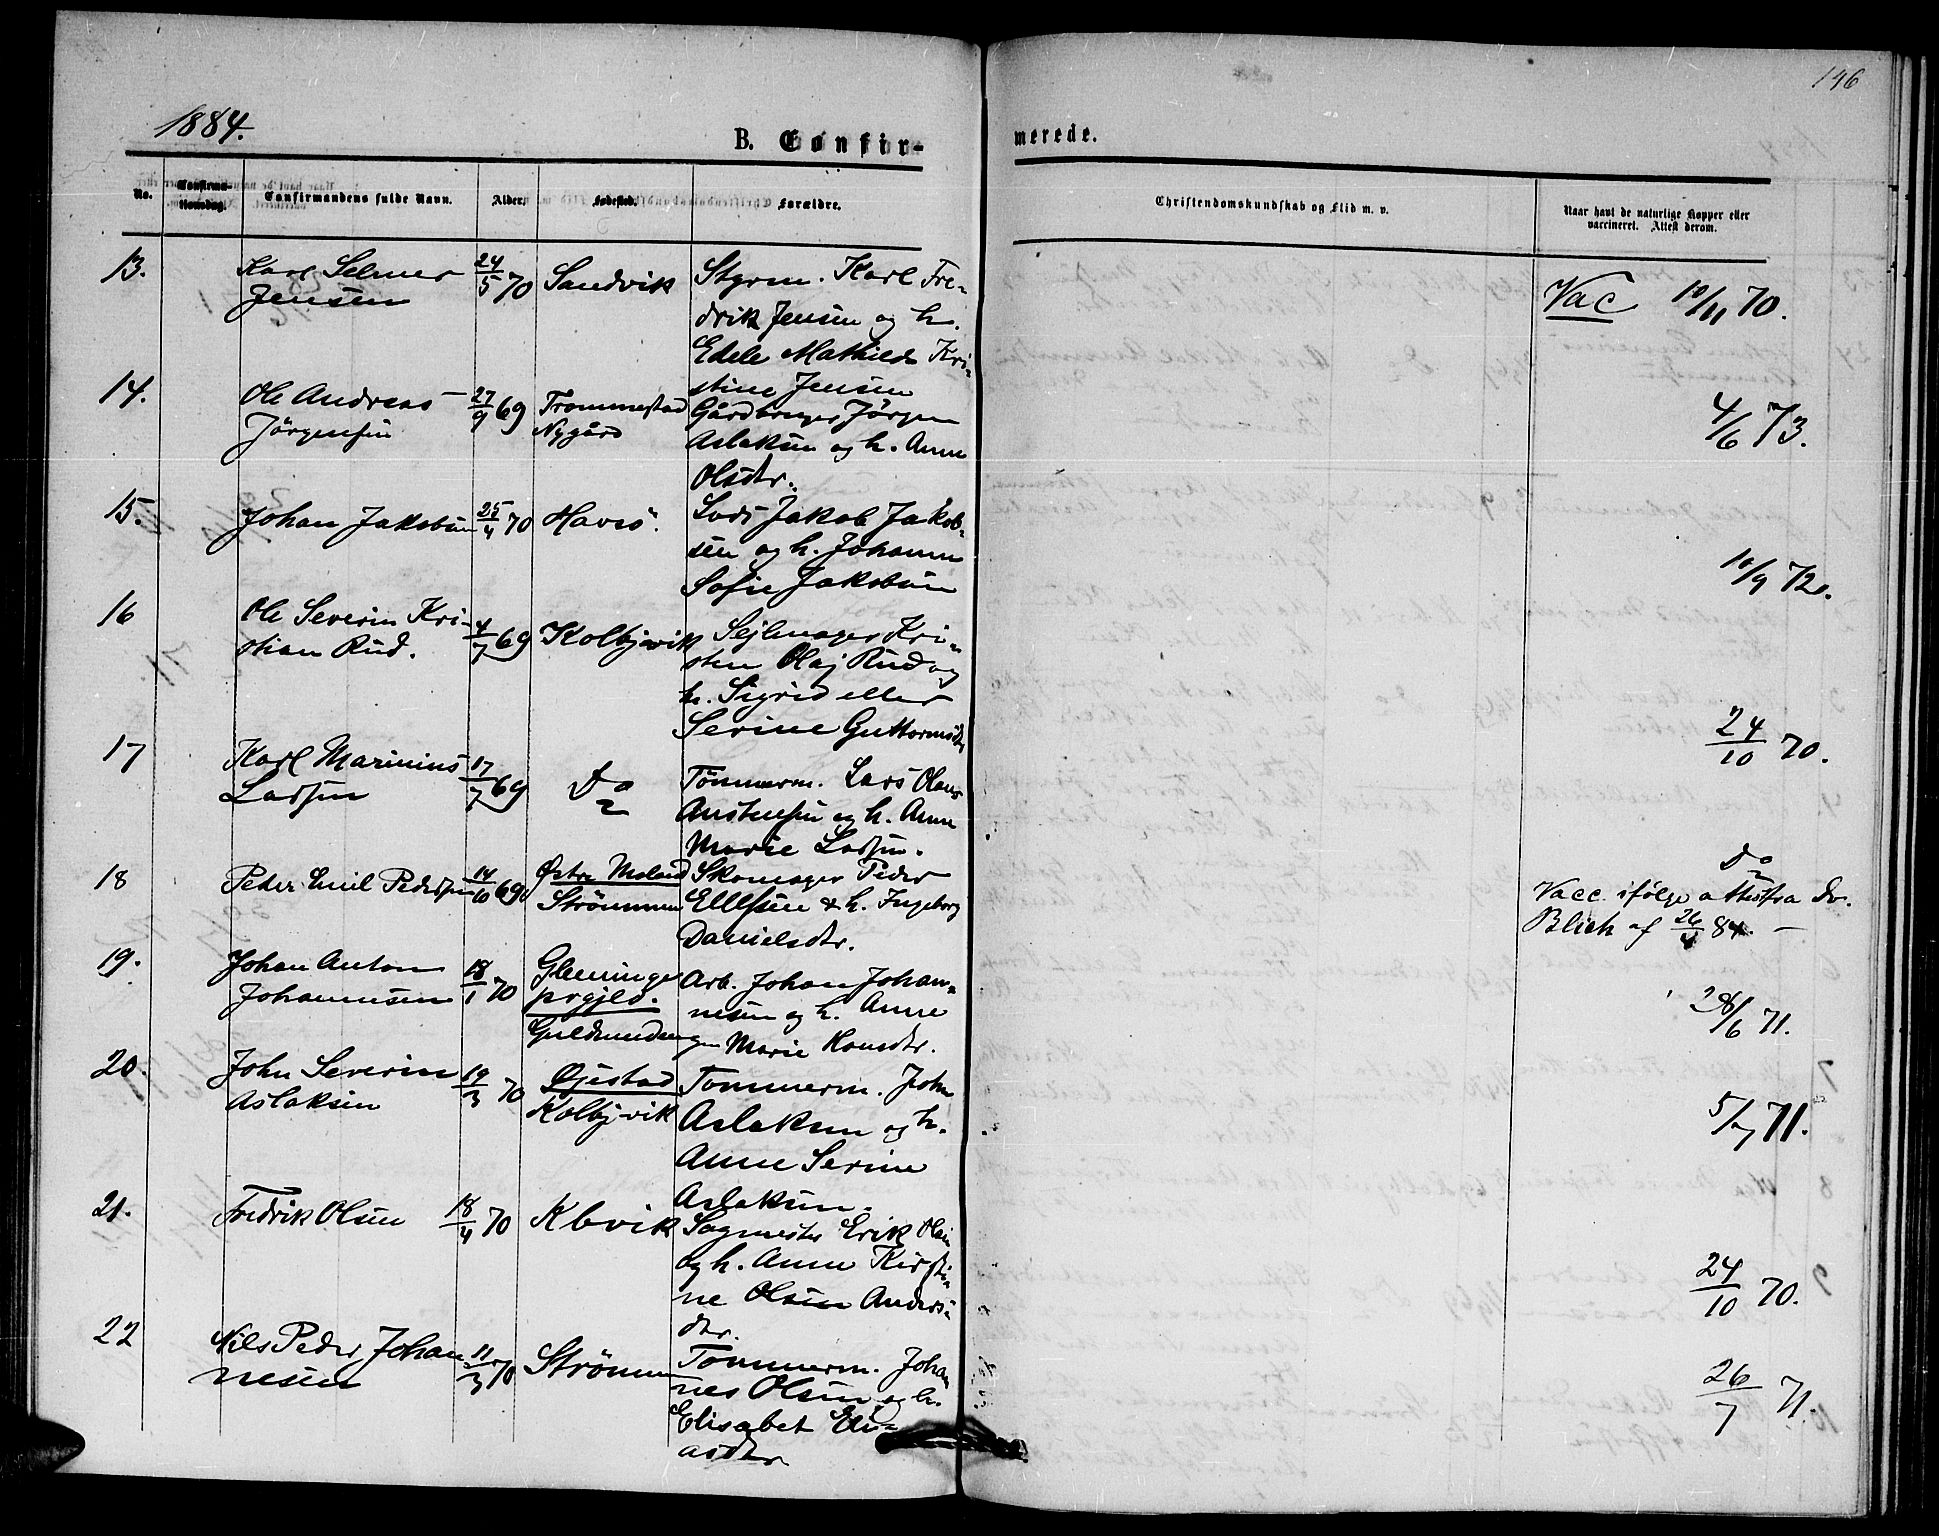 146
1884.
B. Confir-
merede.
No.
Confirma-
tionsdag.
Confirmandens fulde Navn.
Alder.
Fødested.
Forældre.
Christendomskundskab og Flid m. v.
Naar havt de naturlige Kopper eller
vaccineret. Attest derom.
13.
Karl Selmer
Jensen
24/5 70
Sandvik
Styrm. Karl Fre-
drik Jensen og h.
Edele Mathilde Kri-
stine Jensen
Vac 10/11 70.
14.
Ole Andreas
Jørgensen
27/9 69
Trommestad
Nygård
Gårdbruger Jørgen
Aslaksen og h. Anne
Olsdtr.
4/6 73.
15.
Johan Jakobsen
25/4 70
Havsö.
Lods Jakob Jakob-
sen og h. Johanne
Sofie Jakobsen
10/9 72.
16
Ole Severin Kri-
stian Rud.
4/7 69
Kolbjørvik
Sejlmager Kri-
sten Olaj Rud og
h. Sigrid eller
Serine Guttormsdtr
24/10 70.
17
Karl Marinius
Larsen
17/7 69
Do
Tömmerm. Lars Olaus
Anstensen og h. Anne
Marie Larsen.
Do
18
Peder Emil Pedersen
14/10 69
Østre Moland
Strömmen
Skomager Peder
Ellefsen & h. Ingeborg
Danielsdtr.
Vacc. ifølge attest fra Dr.
Blich af 26/4 84. —
19.
Johan Anton
Johannesen
18/1 70
Glemminge
prgjeld.
Guldmundengen
Arb. Johan Johan-
nesen og h. Anne
Marie Hansdtr.
28/6 71.
20.
John Severin
Aslaksen
19/3 70
Øjestad
Kolbjvik
Tommerm. John
Aslaksen og h.
Anne Serine
Aslaksen.
5/7 71.
21.
Fredrik Olsen
18/4 70
Kbvik
Sagmester Erik Olsen
og h. Anne Kirsti-
ne Olsen Anders-
dtr.
24/10 70.
22
Nils Peder Johan
nesen
11/3 70
Strömmen
Tommerm. Johan
nes Olsen og h.
Elisabet Eli-
asdtr
26/7 71.